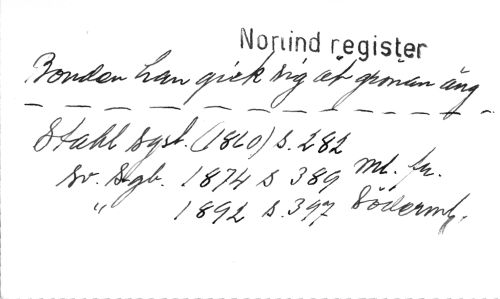 Norlind register
Bonden han gick sig åt grönan äng
Stahl sgsb. (1860) s. 282
sv. sgb. 1874 s 389 ml. fr.
" 1892 s. 397 Söderml.